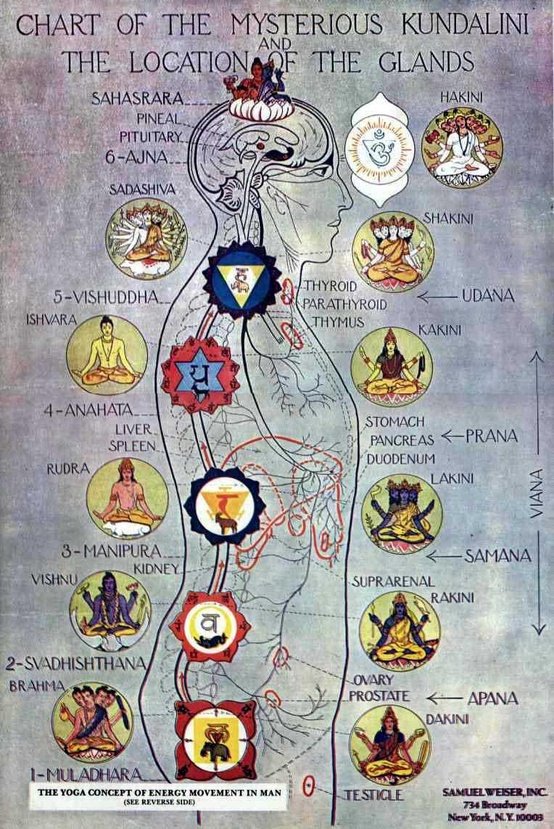 CHART OF THE MYSTERIOUS KUNDALINI
AND
THE LOCATION OF THE GLANDS
SAHASRARA
PINEAL
PITUITARY
6-AJNA
HAKINI
ॐ
SADASHIVA
SHAKINI
5-VISHUDDHA
THYROID
PARATHYROID
THYMUS
UDANA
ISHVARA
KAKINI
4-ANAHATA
LIVER
SPLEEN
STOMACH
PANCREAS
DUODENUM
PRANA
VIANA
RUDRA
LAKINI
3-MANIPURA
KIDNEY
SAMANA
VISHNU
SUPRARENAL
RAKINI
व
2-SVADHISHTHANA
BRAHMA
OVARY
PROSTATE
APANA
DAKINI
1-MULADHARA
TESTICLE
THE YOGA CONCEPT OF ENERGY MOVEMENT IN MAN
(SEE REVERSE SIDE)
SAMUEL WEISER, INC.
734 Broadway
New York, N.Y. 10003